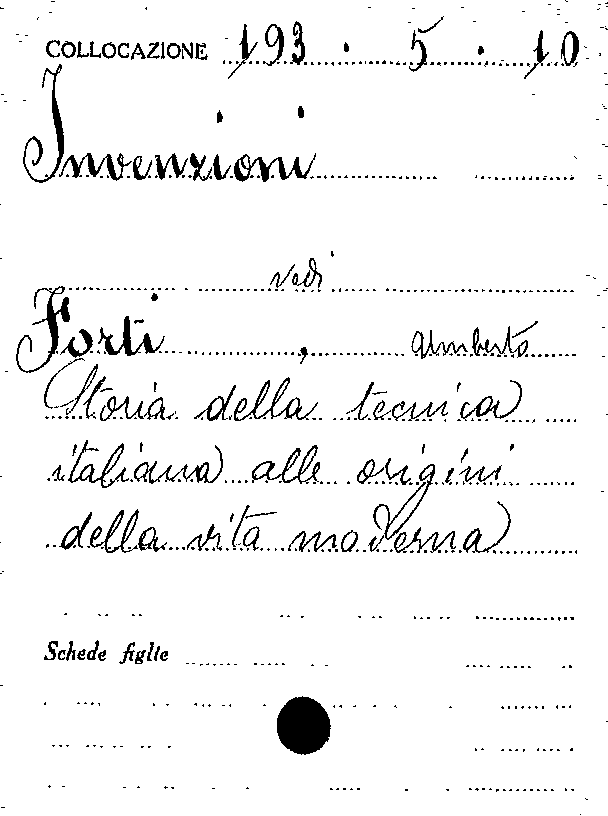 COLLOCAZIONE 193 . 5 . 10
Invenzioni
vedi
Forti, Umberto
Storia della tecnica
italiana alle origini
della vita moderna
Schede figlie